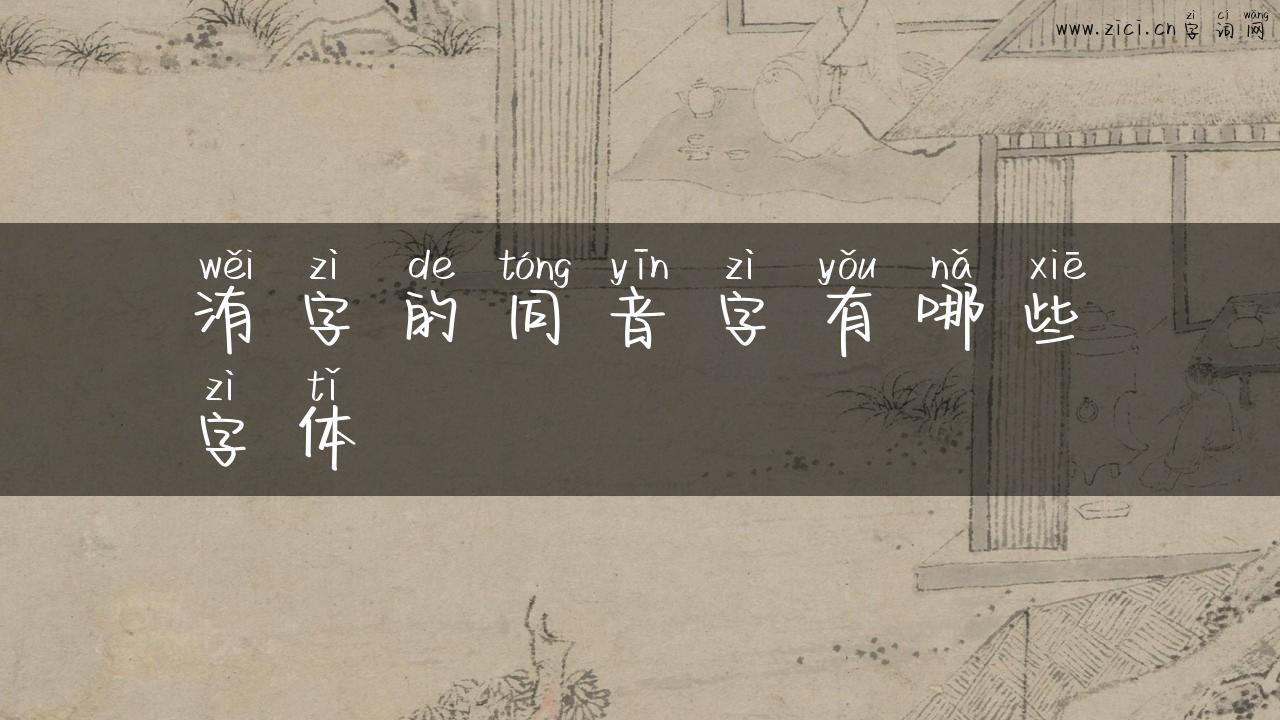 www.zici.cn zì cí wǎng
字词网
wěi zì de tóng yīn zì yǒu nǎ xiē
洧字的同音字有哪些
zì tǐ
字体